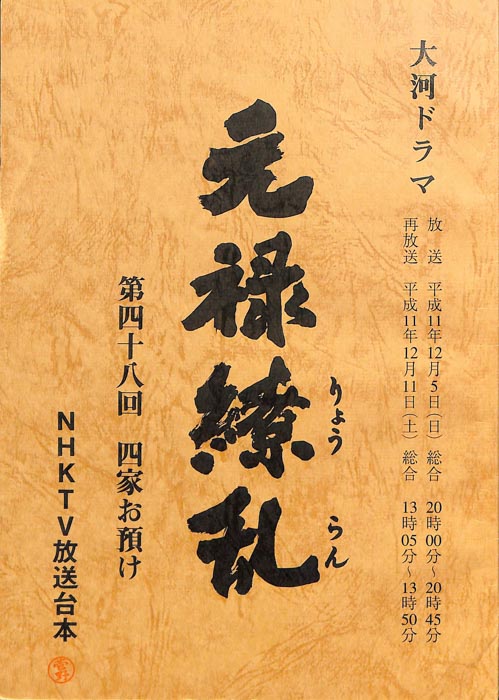 大河ドラマ
放送 平成11年12月5日(日) 総合 20時00分~20時45分
再放送 平成11年12月11日(土) 総合 13時05分~13時50分
元禄繚乱
りょうらん
第四十八回 四家お預け
NHKTV放送台本